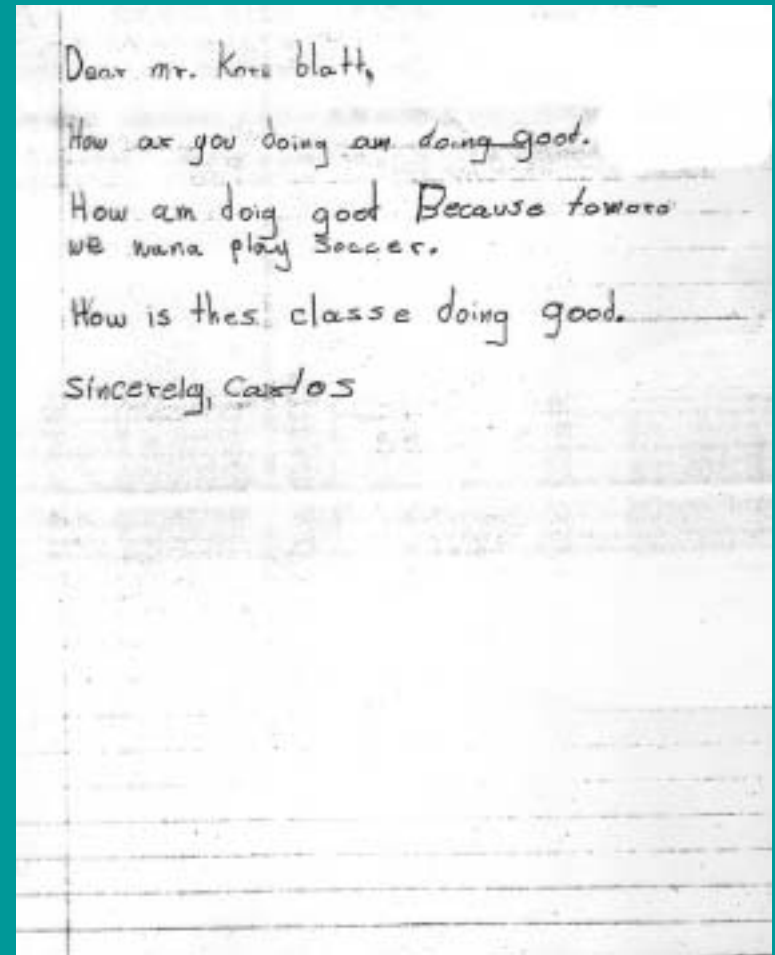 Dear mr. Kore blatt,
How ar you doing am doing good.
How am doig good Because tomoro
we wana play Soccer.
How is thes classe doing good.
Sincerely, Carlos